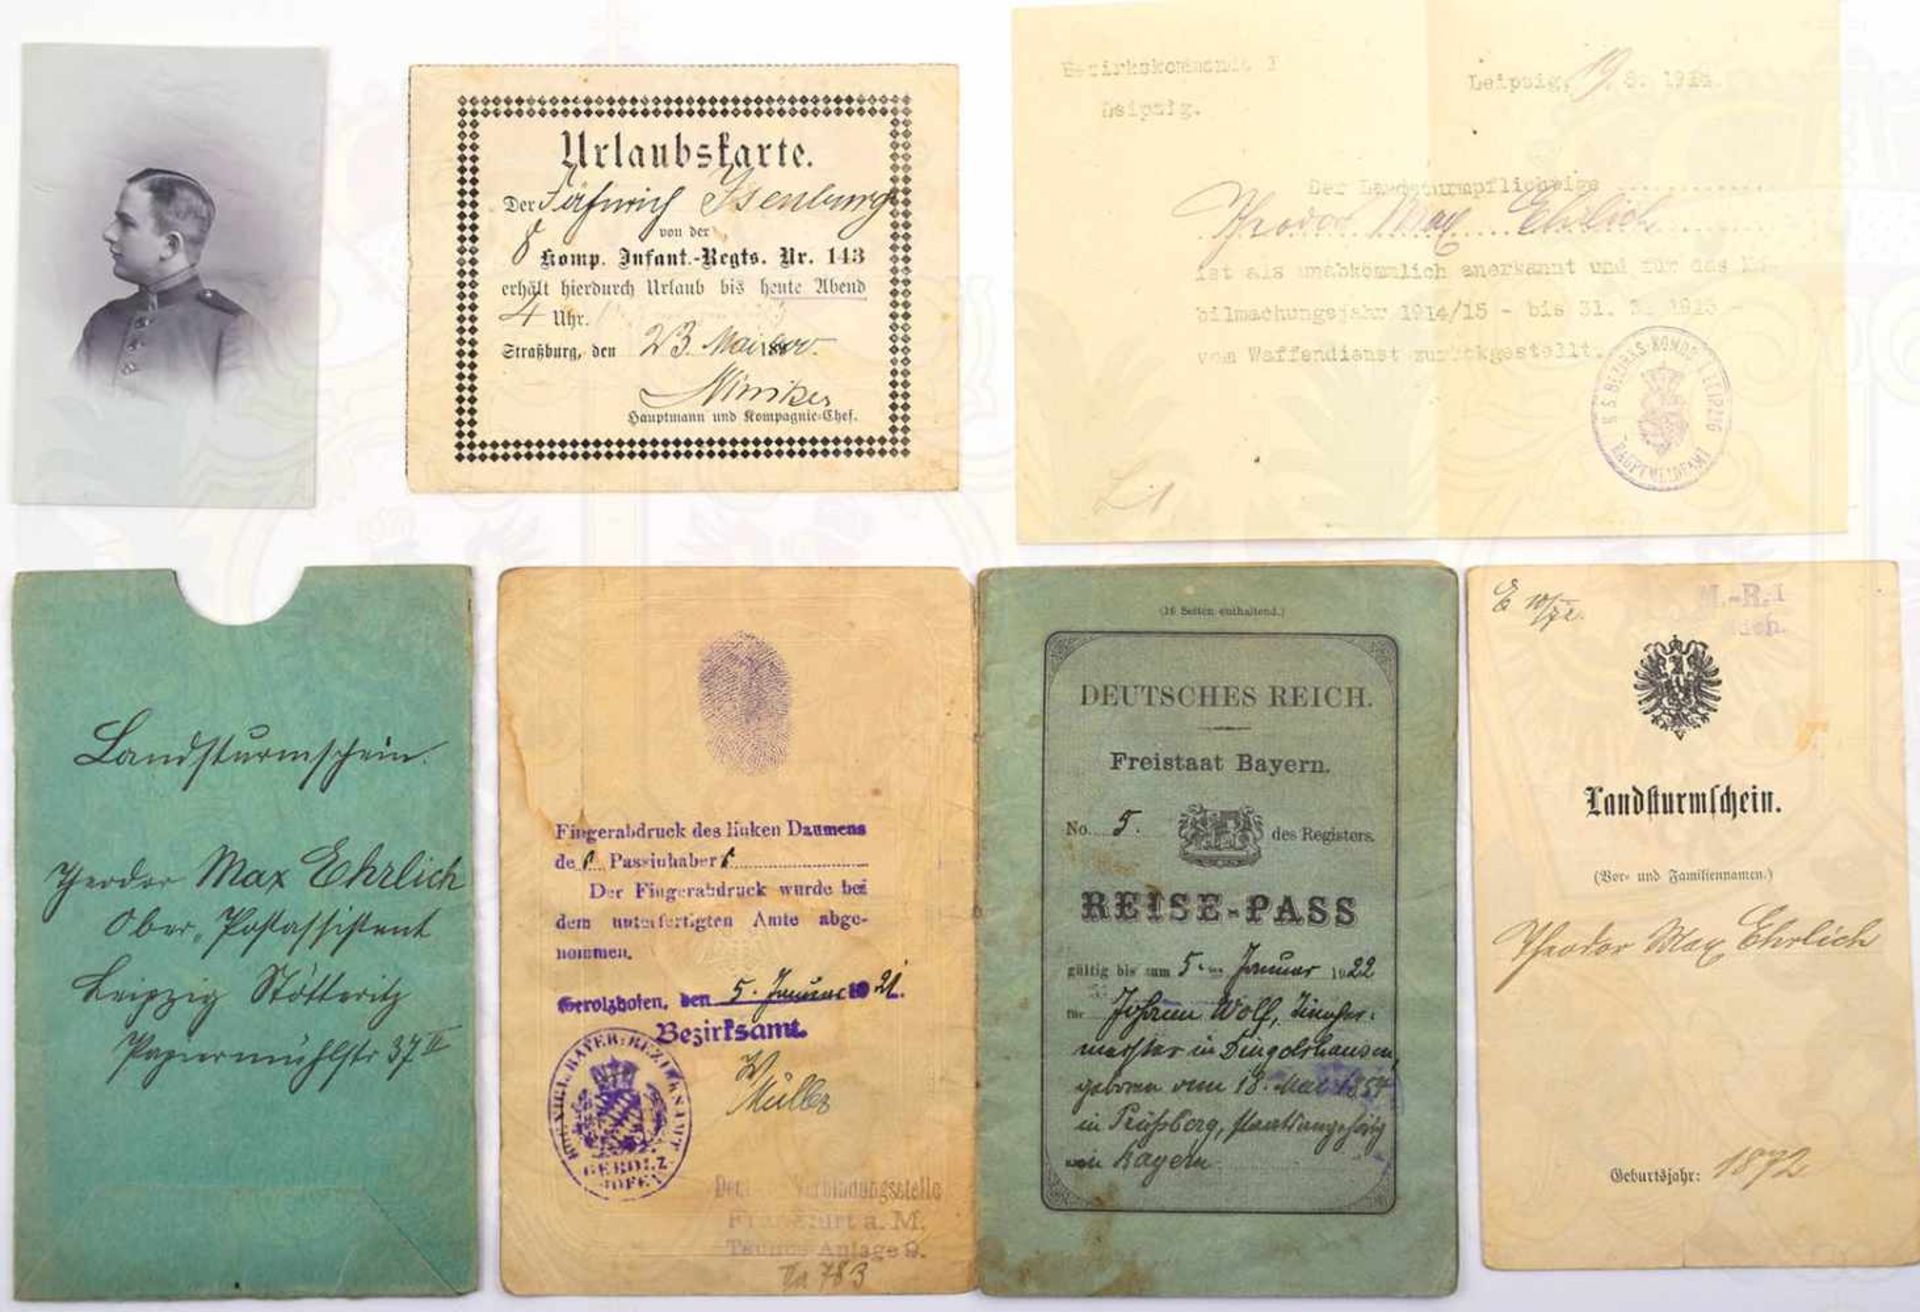 Urlaubskarte.
Der Fähnrich Isenburg
von der
8 Komp. Infant.-Regts. Nr. 143
erhält hierdurch Urlaub bis heute Abend
4 Uhr.
Straßburg, den 23. Mai
Hauptmann und Kompagnie-Chef.
Bezirkskommando I
Leipzig.
Leipzig, 19. 8. 1914.
Der Landsturmpflichtige
Theodor Max Ehrlich
ist als unabkömmlich anerkannt und für das Mo-
bilmachungsjahr 1914/15 - bis 31. 3. 1915 -
vom Waffendienst zurückgestellt.
K.S. BEZIRKS-KOMDO I LEIPZIG
HAUPTMELDEAMT
Landsturmschein.
Theodor Max Ehrlich
Ober-Postassistent
Leipzig Stötteritz
Papiermühlstr 37 II
Fingerabdruck des linken Daumens
des Passinhabers
Der Fingerabdruck wurde bei
dem unterfertigten Amte abge-
nommen.
Gerolzhofen, den 5. Januar 1921.
Bezirksamt.
Müller
KOENIGL. BAYER. BEZIRKSAMT
GEROLZ-
HOFEN
Verbindungsstelle
Frankfurt a. M.
Taunus-Anlage 9.
783
(16 Seiten enthaltend.)
DEUTSCHES REICH.
Freistaat Bayern.
No. 5. des Registers.
REISE-PASS
gültig bis zum 5. Januar 1922
für Johann Wolf,
meister in Dingolshausen,
geboren am 18. Mai 1857
in Prüßberg, staatsangehörig
in Bayern.
E 10/72.
M.-R.I
Landsturmschein.
(Vor- und Familiennamen.)
Theodor Max Ehrlich
Geburtsjahr: 1872